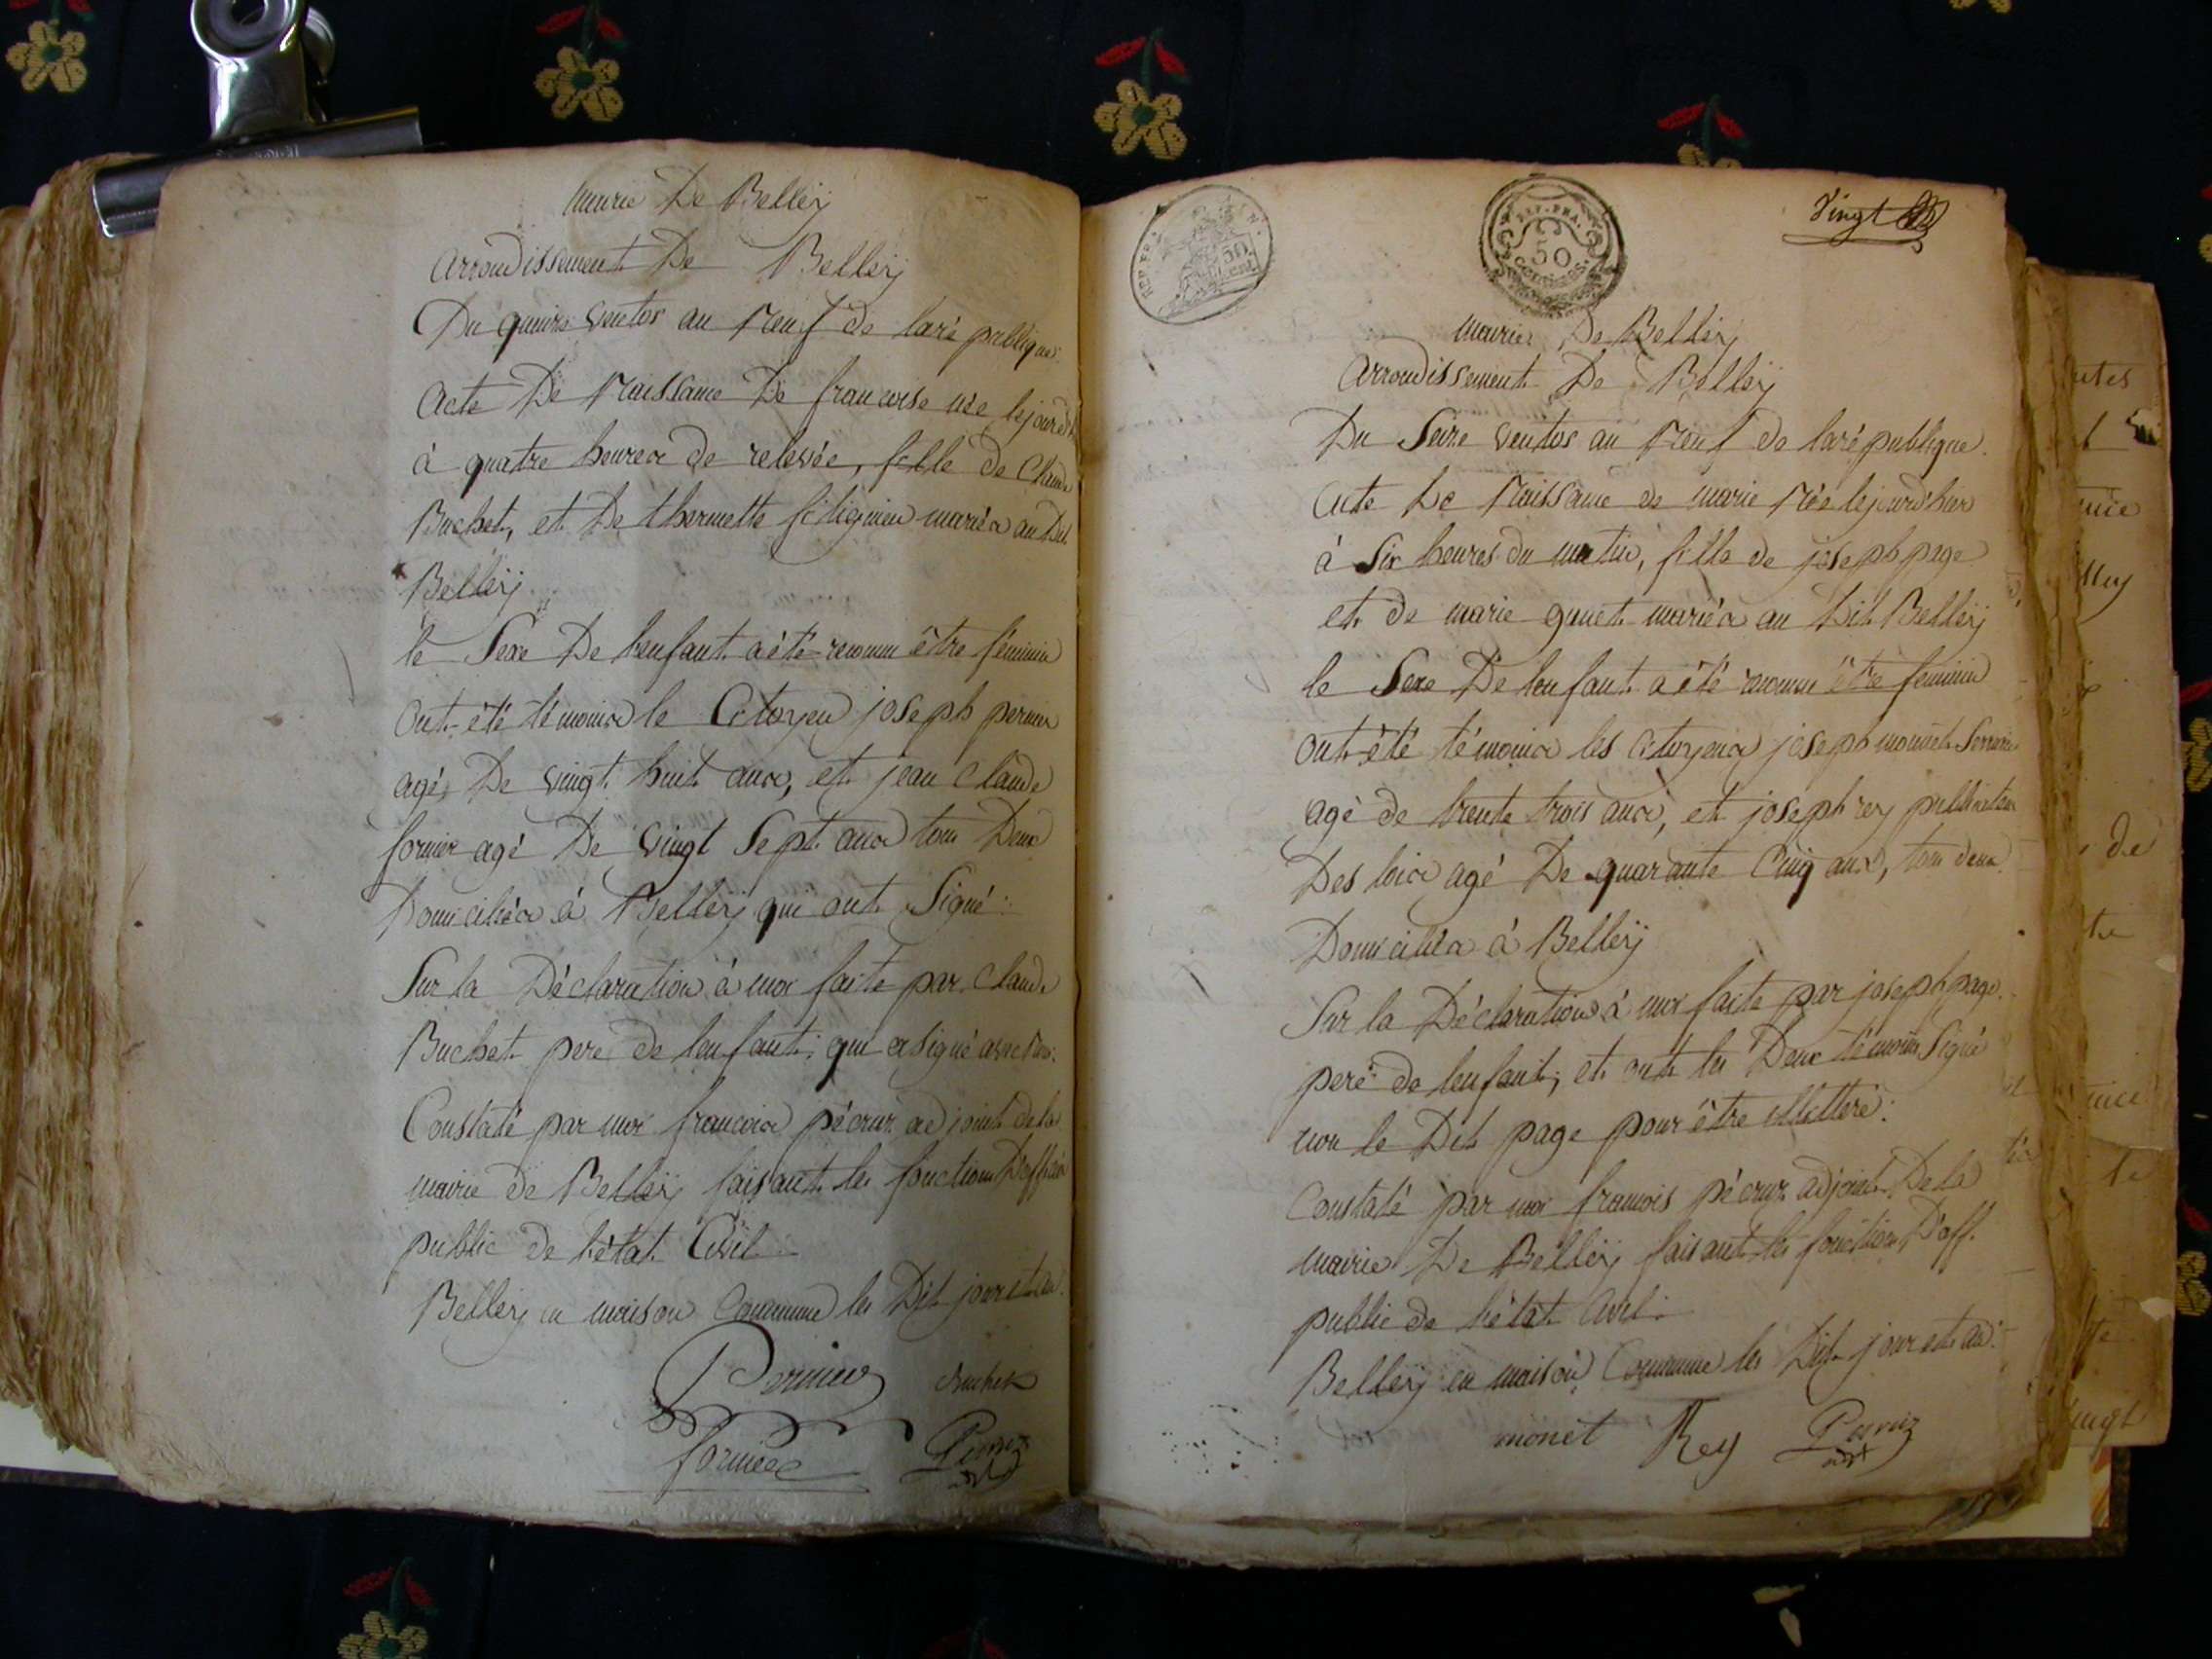 mairie De Belleÿ
arrondissement De Belleÿ
Du quinze ventos an neuf de laré publique.
Acte De Naissance De francoise née lejourd'h
à quatre heures de relevée, fille de Claude
Buchet, et De thermette mariés au Dit
Belleÿ
le Sexe De lenfant aété reconnu être féminin
Ont été témoins le Citoyen joseph pernier
agé De vingt huit ans, et jean Claude
fornier agé De vingt Sept ans tous Deux
Domiciliés à Belleÿ qui ont Signé :
Sur la Déclaration à moi faite par Claude
Buchet pere de lenfant; qui a signé avec nous.
Constaté par moi francois pécruz adjoint dela
mairie de Belleÿ faisant les fonctions D'officier
public de l'état Civil
Belleÿ en maison Commune les Dit jour et an.
Pernier Buchet
fornier
Vingt
REP. FRA.
50
centimes
REP. FR.
50
cent.
mairie De Belleÿ
Arrondissement De Belleÿ
Du Seize ventos an neuf de larépublique.
Acte De Naissance de marie Née lejourd'hier
à Six heures du matin, fille de joseph page
et de marie mariés au Dit Belleÿ
le Sexe De lenfant a été reconnu être feminin
ont été témoins les Citoyens joseph monnet Serrurier
agé de trente trois ans, et joseph rey publicateur
Des loix agé De quarante Cinq ans, tous deux
Domiciliés à Belleÿ
Sur la Déclaration à moi faite par joseph page.
pere de lenfant; et ont les Deux témoins Signé
non le Dit page pour être illettéré:
Constaté par moi francois pécruz adjoint De la
mairie De Belleÿ faisant les fonctions D'off.
public de l'état Civil.
Belleÿ en maison Commune les Dit jour et an.
monet Rey